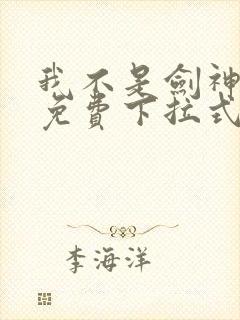 我不是劍神
免費下拉式
李海洋